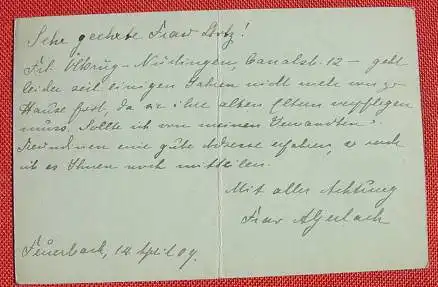 Sehr geehrte Frau Lotz!
Frl. Ölkrug – Nürtingen, Canalst. 12 – geht
leider seit einigen Jahren nicht mehr von zu
Hause fort, da sie ihre alten Eltern verpflegen
muss. Sollte ich von meinen Verwandten u.
Freundinnen eine gute Adresse erfahren, so werde
ich es Ihnen noch mitteilen.
Mit aller Achtung
Frau
Feuerbach, 12 April 09.